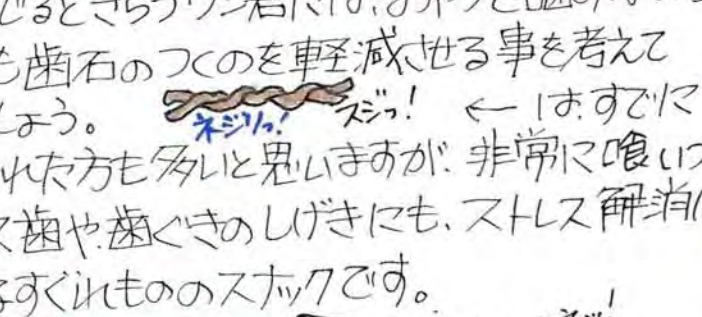 も歯石のつくのを軽減させる事を考えて
しょう。 ネジリっ! スジっ! ← は、すでに
れた方も多いと思いますが、非常に喰いつ
歯や歯ぐきのしげきにも、ストレス解消に
すぐれもののスナックです。